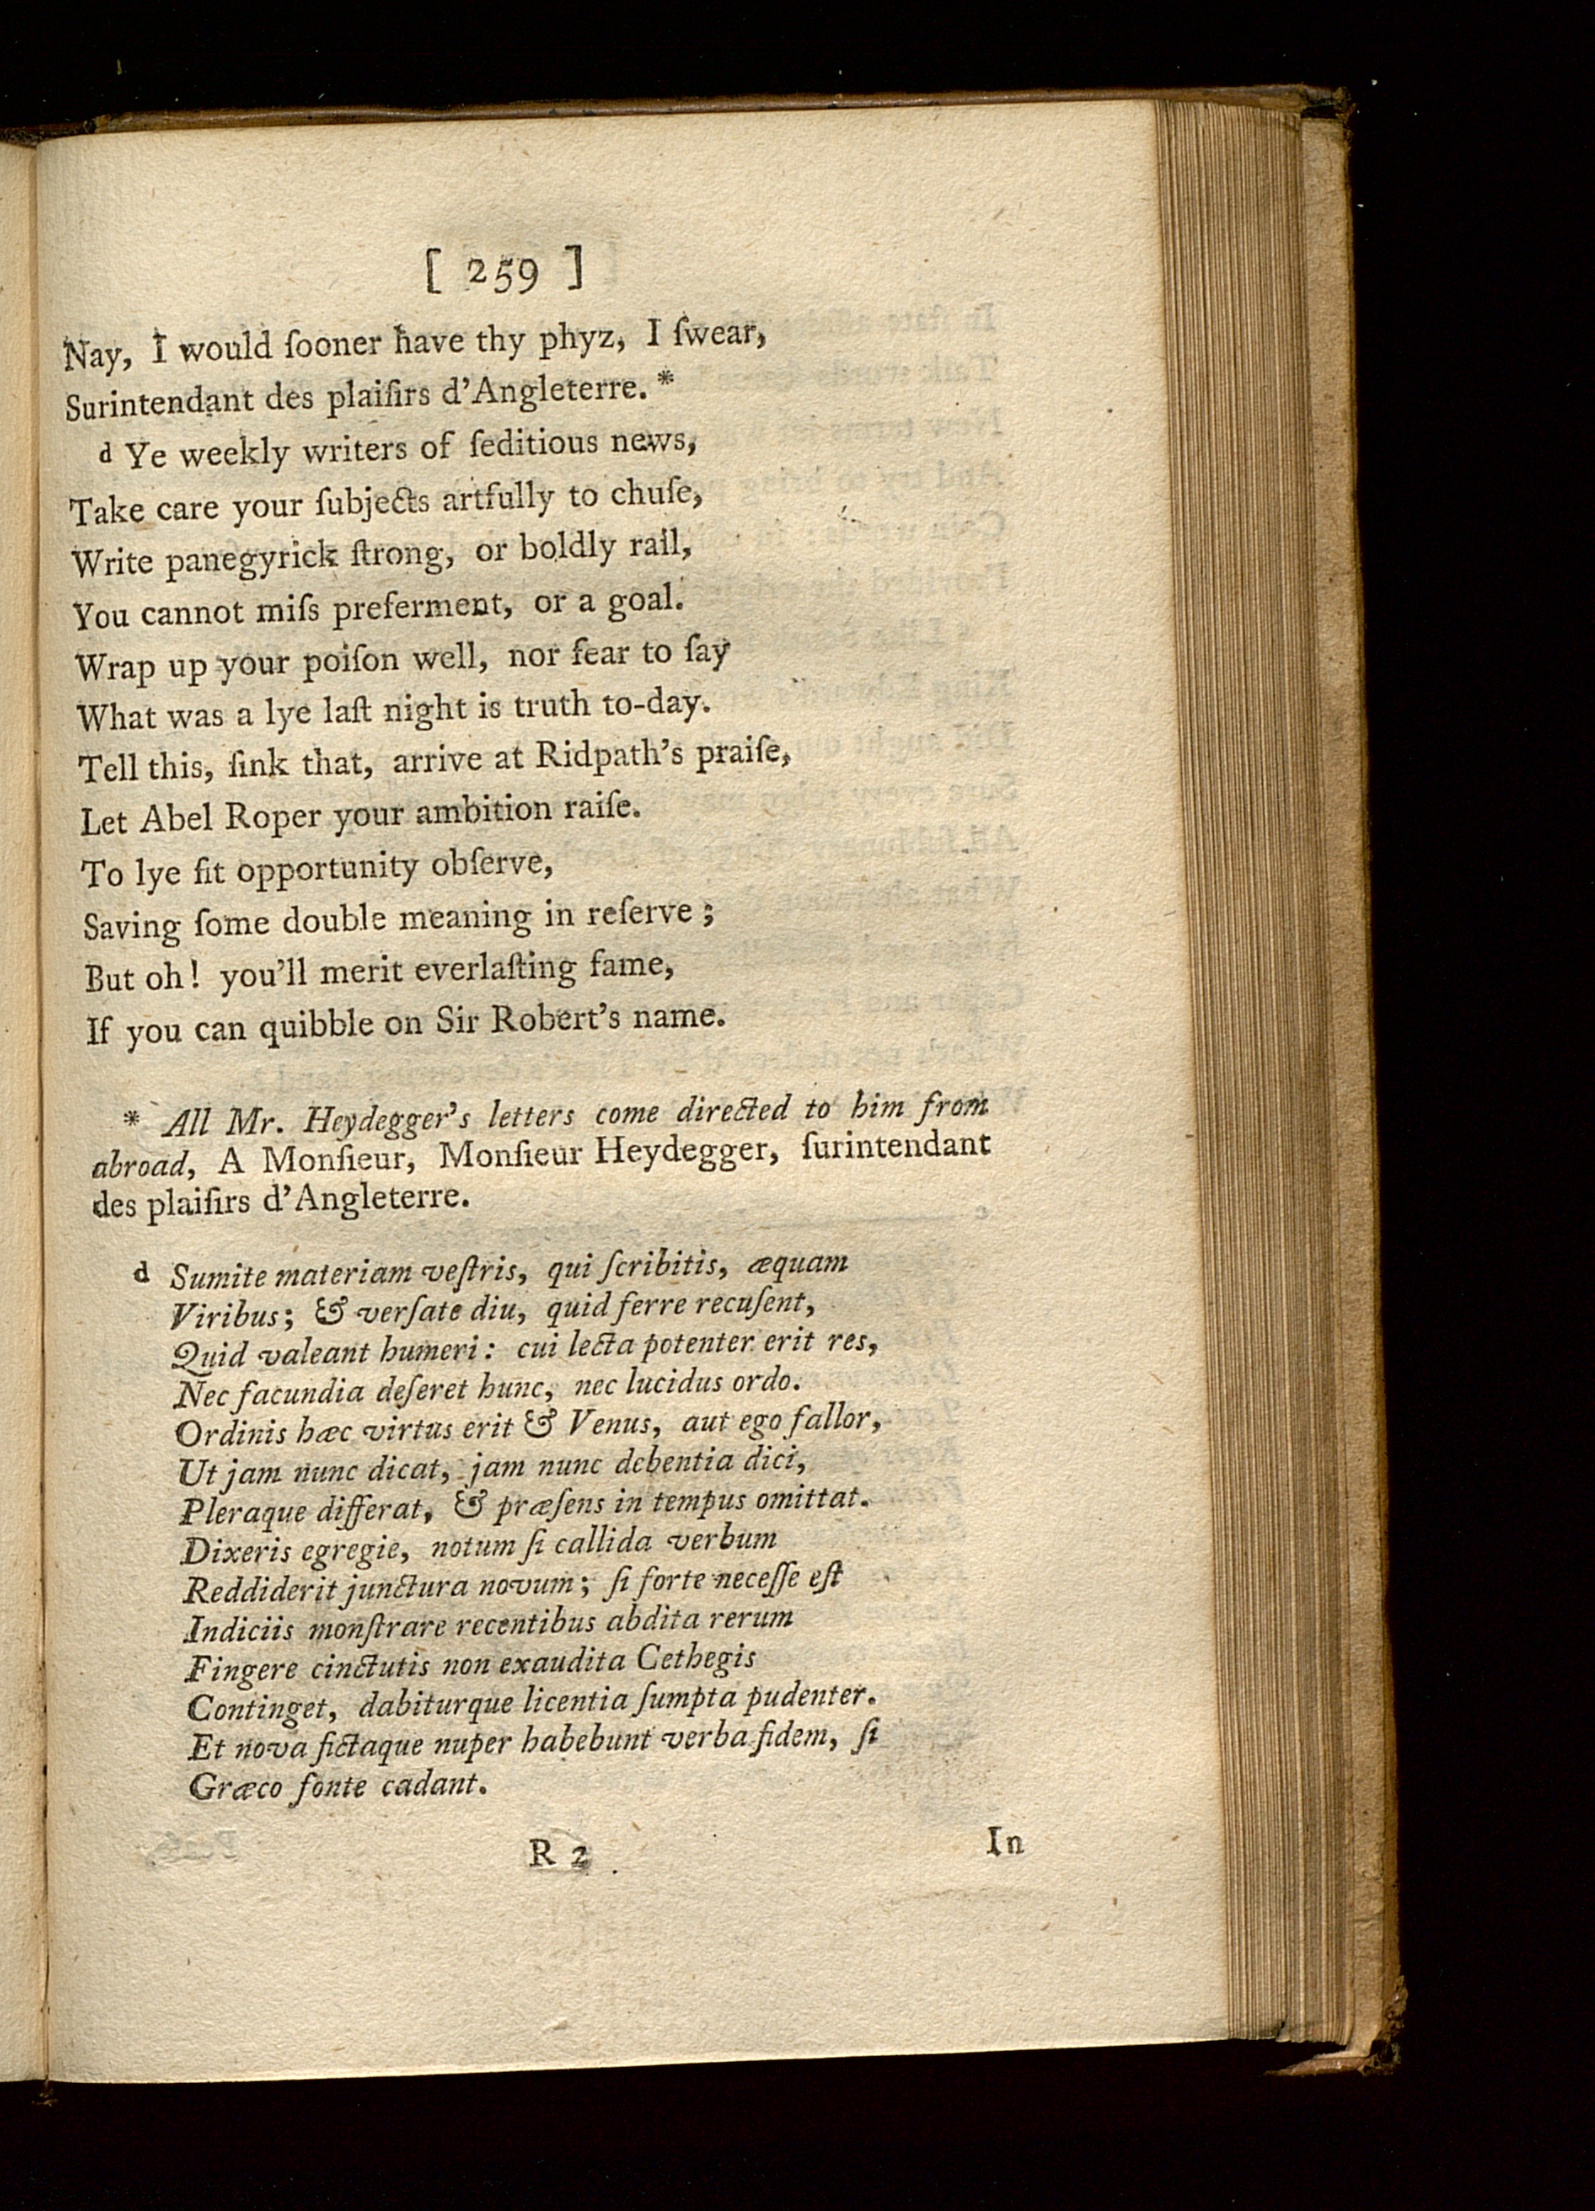 [ 259 ]
Nay, I would ſooner have thy phyz, I ſwear,
Surintendant des plaiſirs d'Angleterre. *
d Ye weekly writers of ſeditious news,
Take care your ſubjects artfully to chuſe,
Write panegyrick ſtrong, or boldly rail,
You cannot miſs preferment, or a goal.
Wrap up your poiſon well, nor fear to ſay
What was a lye laſt night is truth to-day.
Tell this, ſink that, arrive at Ridpath's praiſe,
Let Abel Roper your ambition raiſe.
To lye fit opportunity obſerve,
Saving ſome double meaning in reſerve ;
But oh! you'll merit everlaſting fame,
If you can quibble on Sir Robert's name.
* All Mr. Heydegger's letters come directed to him from
abroad, A Monſieur, Monſieur Heydegger, ſurintendant
des plaiſirs d'Angleterre.
d Sumite materiam veſtris, qui ſcribitis, æquam
Viribus; & verſate diu, quid ferre recuſent,
Quid valeant humeri: cui lecta potenter erit res,
Nec facundia deſeret hunc, nec lucidus ordo.
Ordinis hæc virtus erit & Venus, aut ego fallor,
Ut jam nunc dicat, jam nunc debentia dici,
Pleraque differat, & præſens in tempus omittat.
Dixeris egregie, notum ſi callida verbum
Reddiderit junctura novum; ſi forte neceſſe eſt
Indiciis monſtrare recentibus abdita rerum
Fingere cinctutis non exaudita Cethegis
Continget, dabiturque licentia ſumpta pudenter.
Et nova fictaque nuper habebunt verba fidem, ſi
Græco fonte cadant.
R 2
In